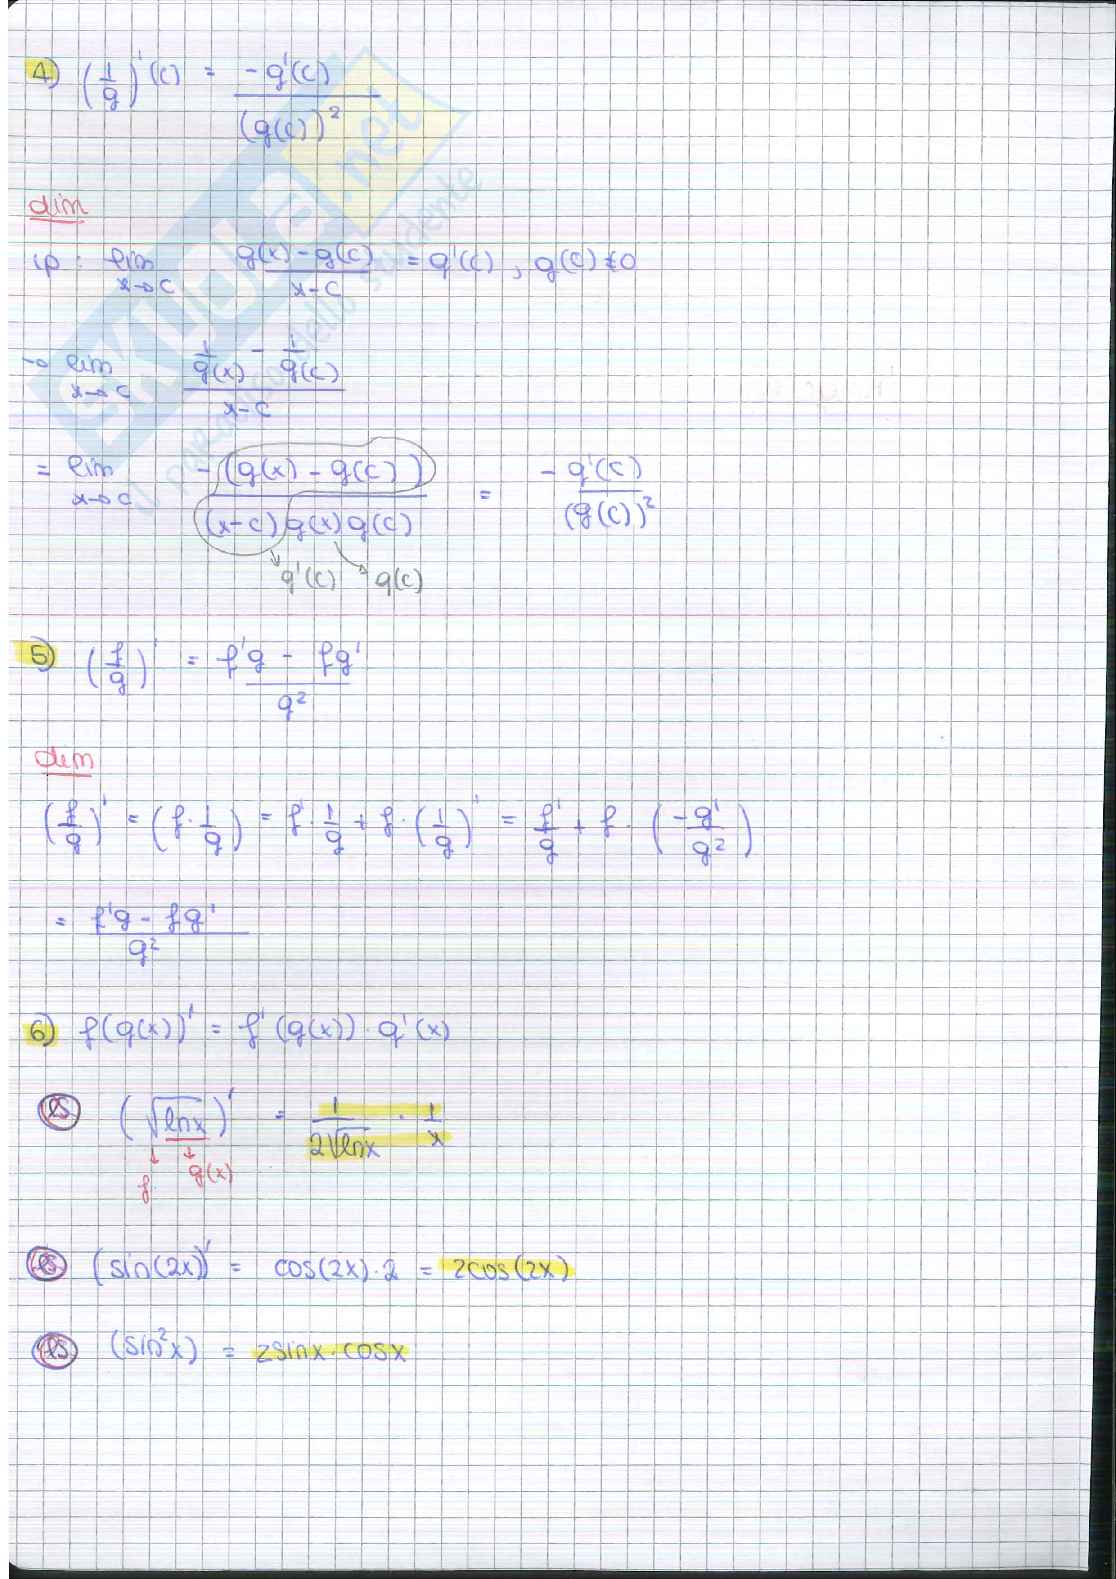 4) (1/g)'(c) = -g'(c) / (g(c))²
dim
ip: lim x→c (g(x) - g(c)) / (x-c) = g'(c), g(c) ≠ 0
→ lim x→c (1/g(x) - 1/g(c)) / (x-c)
= lim x→c -(g(x) - g(c)) / (x-c) g(x) g(c) = -g'(c) / (g(c))²
g'(c) g(c)
5) (f/g)' = f'g - fg' / g²
dim
(f/g)' = (f · 1/g) = f' · 1/g + f · (1/g)' = f'/g + f · (-g'/g²)
= f'g - fg' / g²
6) f(g(x))' = f'(g(x)) · g'(x)
es (√lnx)' = 1/2√lnx · 1/x
f g(x)
es (sin(2x))' = cos(2x) · 2 = 2cos(2x)
es (sin²x) = 2sinx · cosx
SKUOLA.net